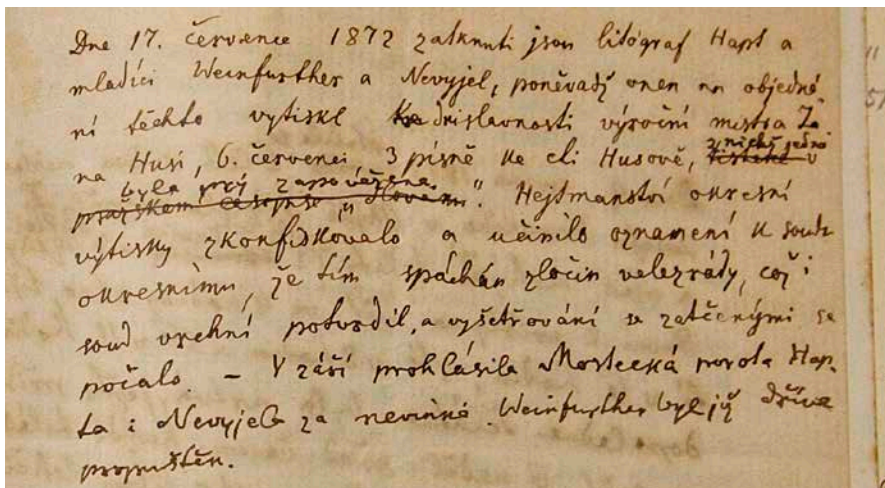 Dne 17. července 1872 zatknuti jsou litograf Hapt a
mladíci Weinfurther a Nevyjel, poněvadž onen na objedná
ní těchto vytiskl ke dni slavnosti výroční mistra Ja
na Husi, 6. července, 3 písně ke cti Husově, z nichž jedna
byla prý zapovězena.
pražském časopise „Slovanu“. Hejtmanství okresní
výtisky zkonfiskovalo a učinilo oznamení k soudu
okresnímu, že tím spáchán zločin velezrády, což i
soud vrchní potvrdil, a vyšetřování se zatčenými se
počalo. – V záři prohlásila Mostecká porota Hap-
ta i Nevyjela za nevinné. Weinfurther byl již dříve
propuštěn.